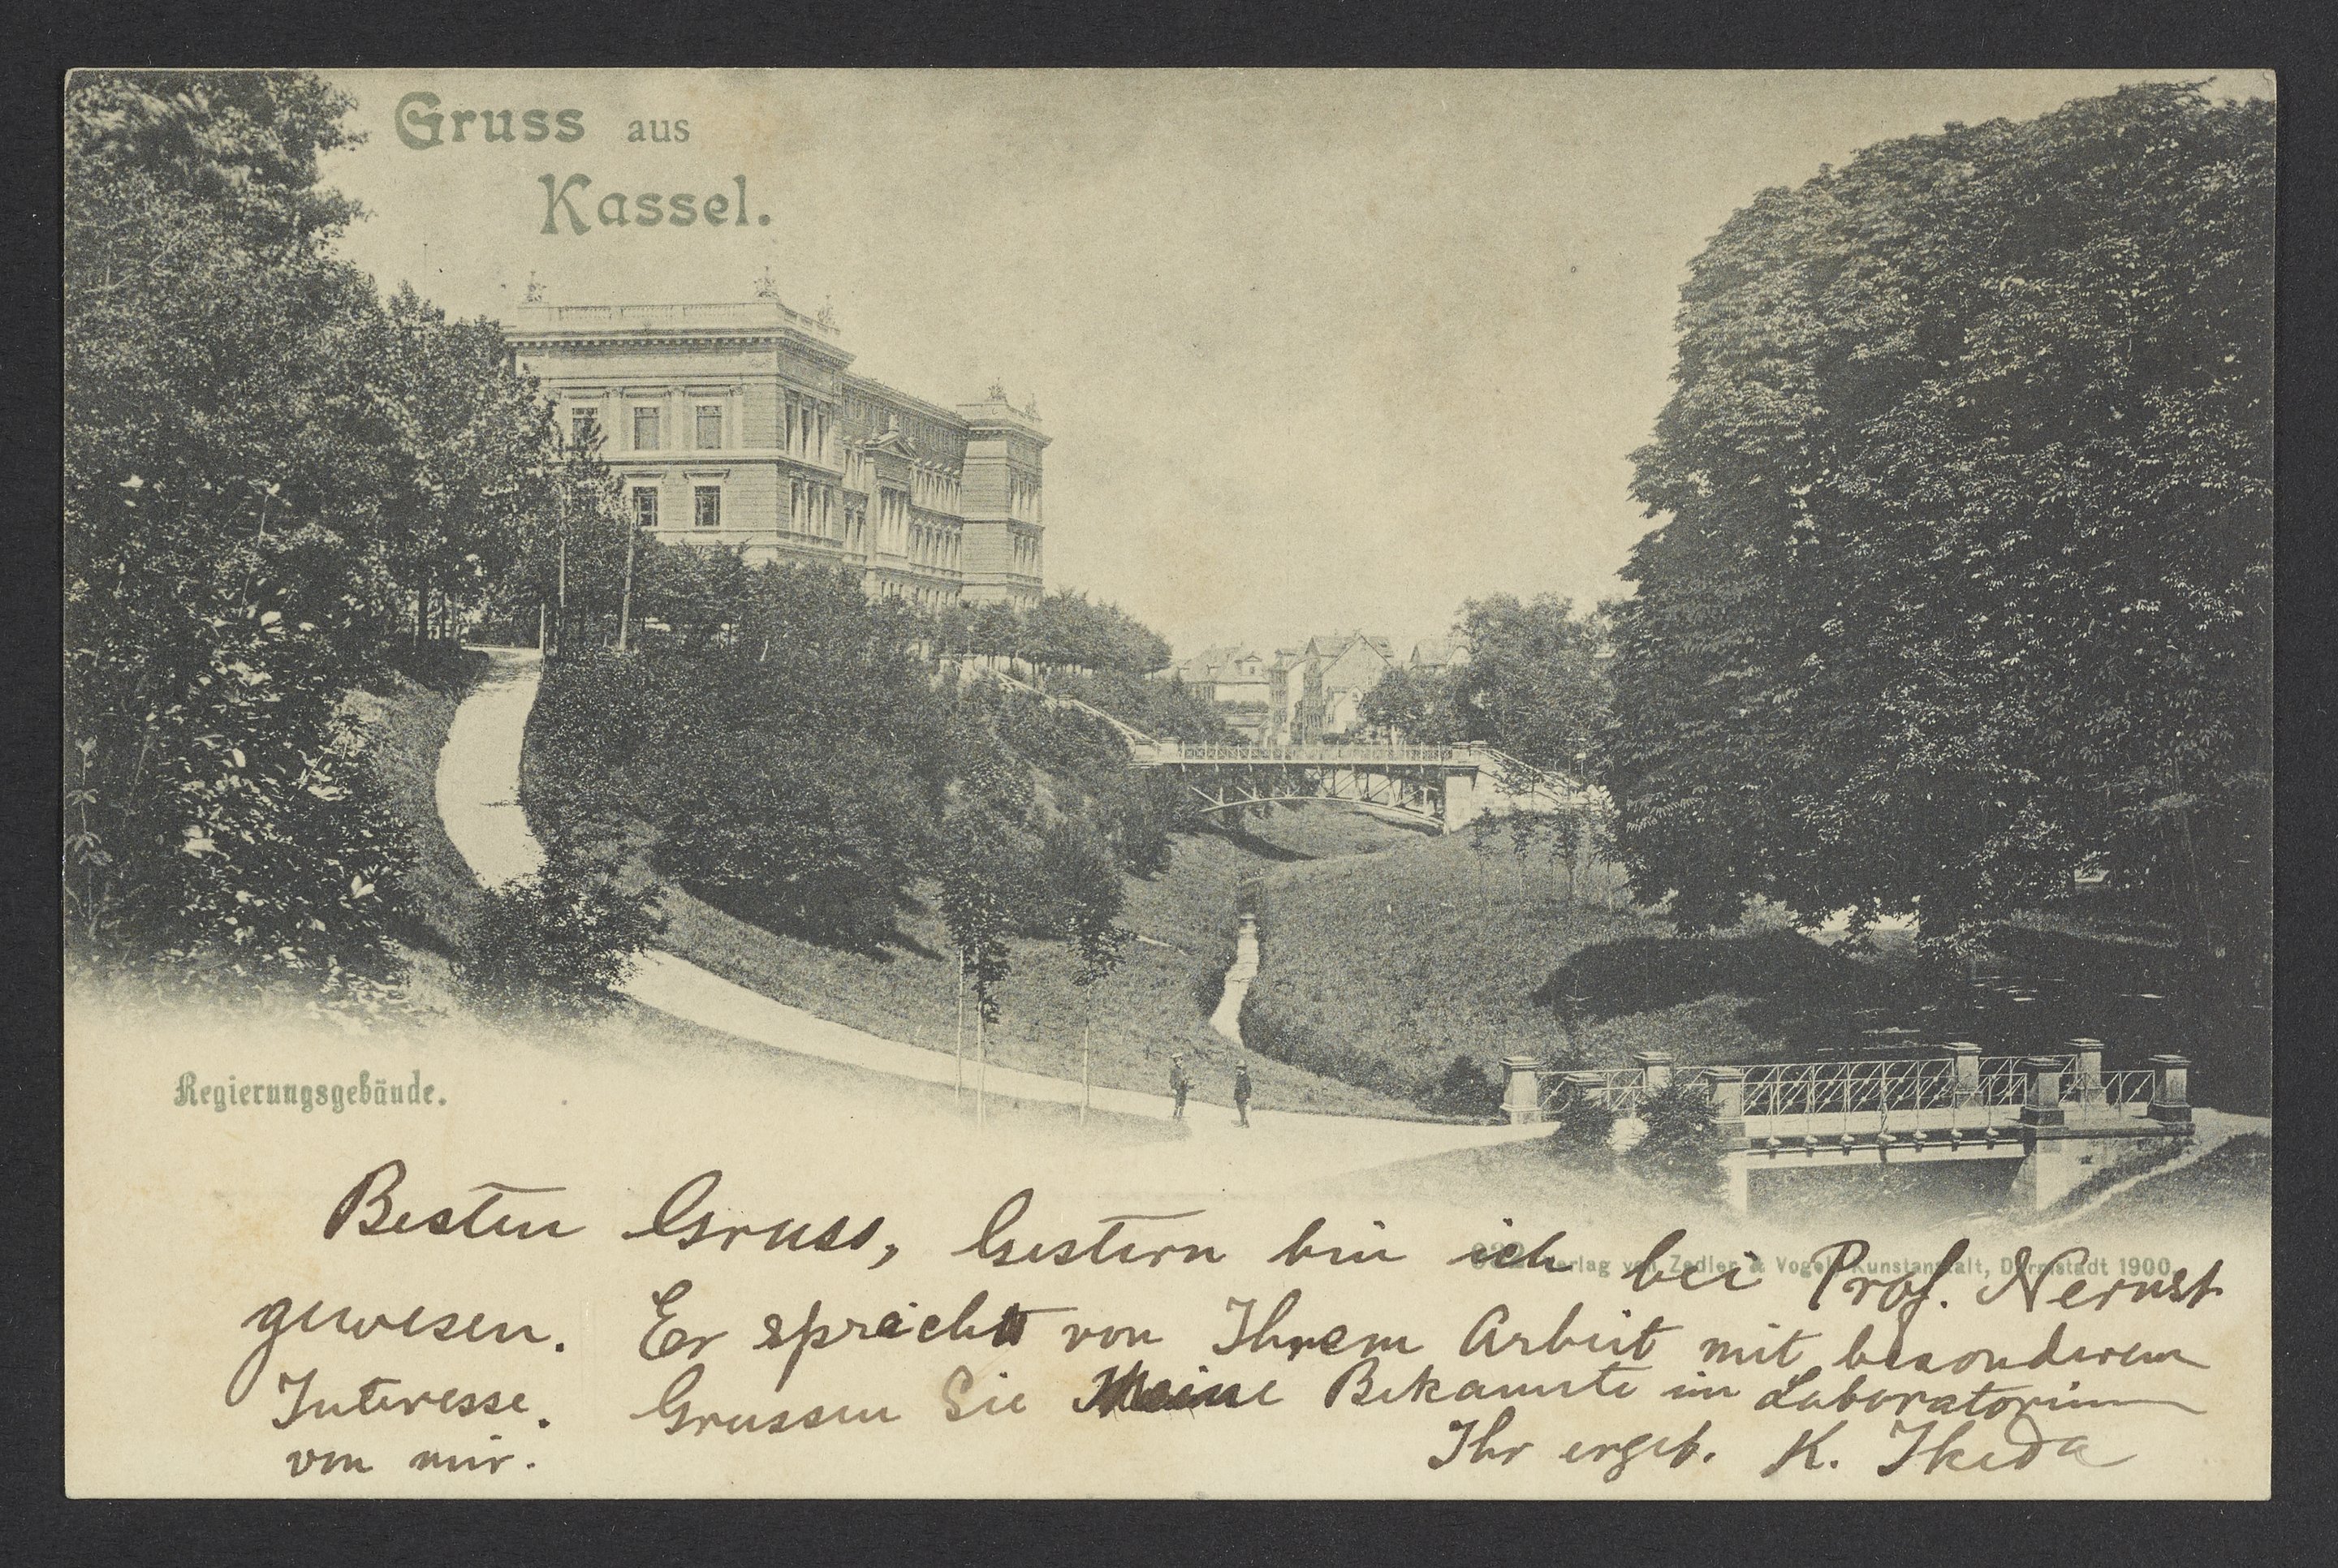 Gruss aus
Kassel.
Regierungsgebäude.
Verlag von Zedler & Vogel, Kunstanstalt, Darmstadt 1900.
Besten Gruss, Gestern bin ich bei Prof. Nernst
gewesen. Er spricht von Ihrem Arbeit mit besonderem
Interesse. Grussen Sie Meine Bekannte im Laboratorium
von mir. Ihr ergeb. K. Ikeda